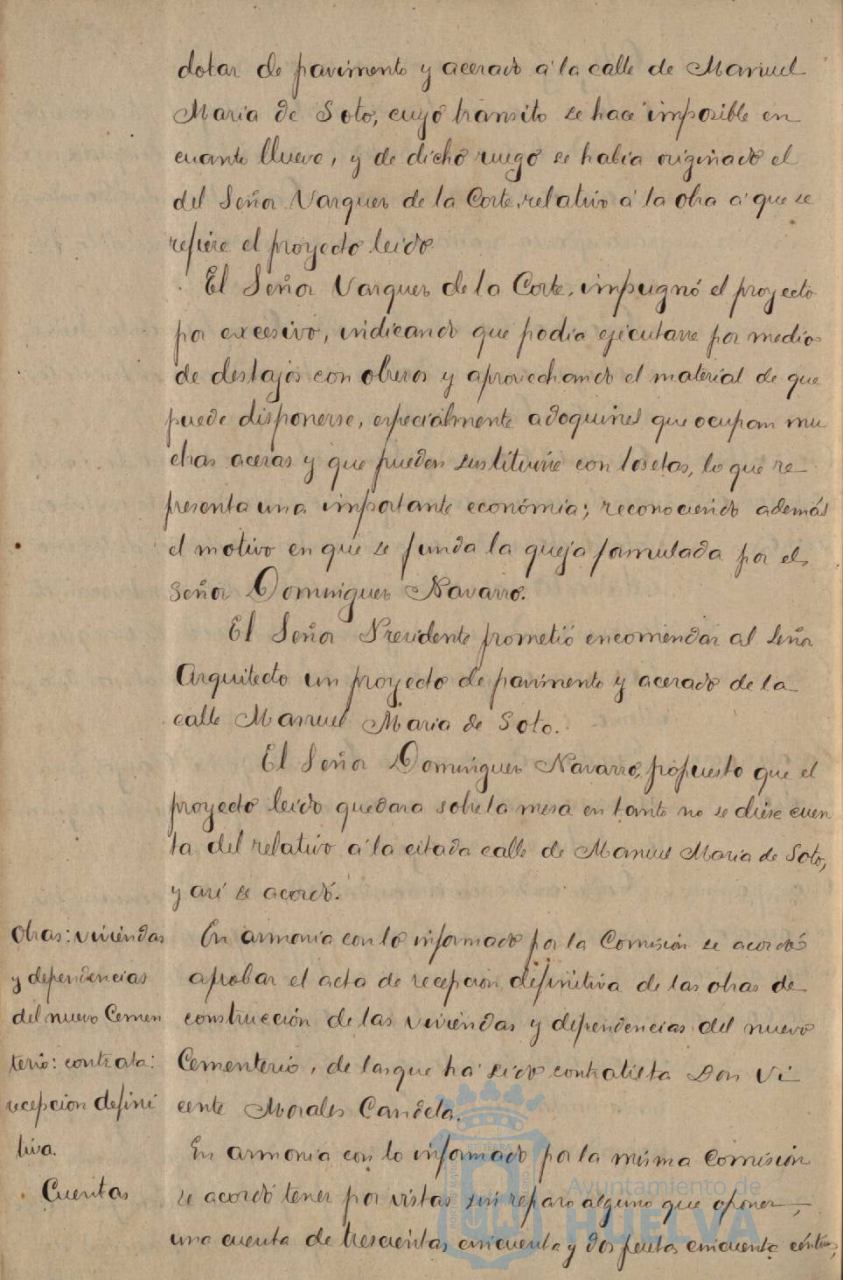 dotar de pavimento y acerado á la calle de Manuel
Maria de Soto, cuyo transito se hace imposible en
cuanto llueve, y de dicho ruego se habia originado el
del Señor Vazquez de la Corte, relativo á la obra á que se
refiere el proyecto leido
El Señor Vazquez de la Corte, impugnó el proyecto
por excesivo, indicando que podia ejecutarse por medio
de destajos con obreros y aprovechando el material de que
puede disponerse, especialmente adoquines que ocupan mu
chas aceras y que pueden sustituirse con losetas, lo que re
presenta una importante económia; reconociendo además
el motivo en que se funda la queja formulada por el
Señor Dominguez Navarro.
El Señor Presidente prometió encomendar al Señor
Arquitecto un proyecto de pavimento y acerado de la
calle Manuel Maria de Soto.
El Señor Dominguez Navarro, propuesto que el
proyecto leido quedara sobre la mesa en tanto no se diese cuen
ta del relativo á la citada calle de Manuel Maria de Soto,
y asi se acordó.
Obras: viviendas
y dependencias
del nuevo Cemen
terio: contrata:
recepcion defini
tiva.
En armonia con lo informado por la Comisión se acordó
aprobar el acta de recepcion definitiva de las obras de
construcción de las viviendas y dependencias del nuevo
Cementerio, de las que ha sido contratista Don Vi
cente Morales Candela.
Cuentas
En armonia con lo informado por la misma Comisión
se acordó tener por vistas sin reparo alguno que oponer,
una cuenta de trescientas cincuenta y dos pesetas cincuenta céntimos,
Ayuntamiento de
HUELVA